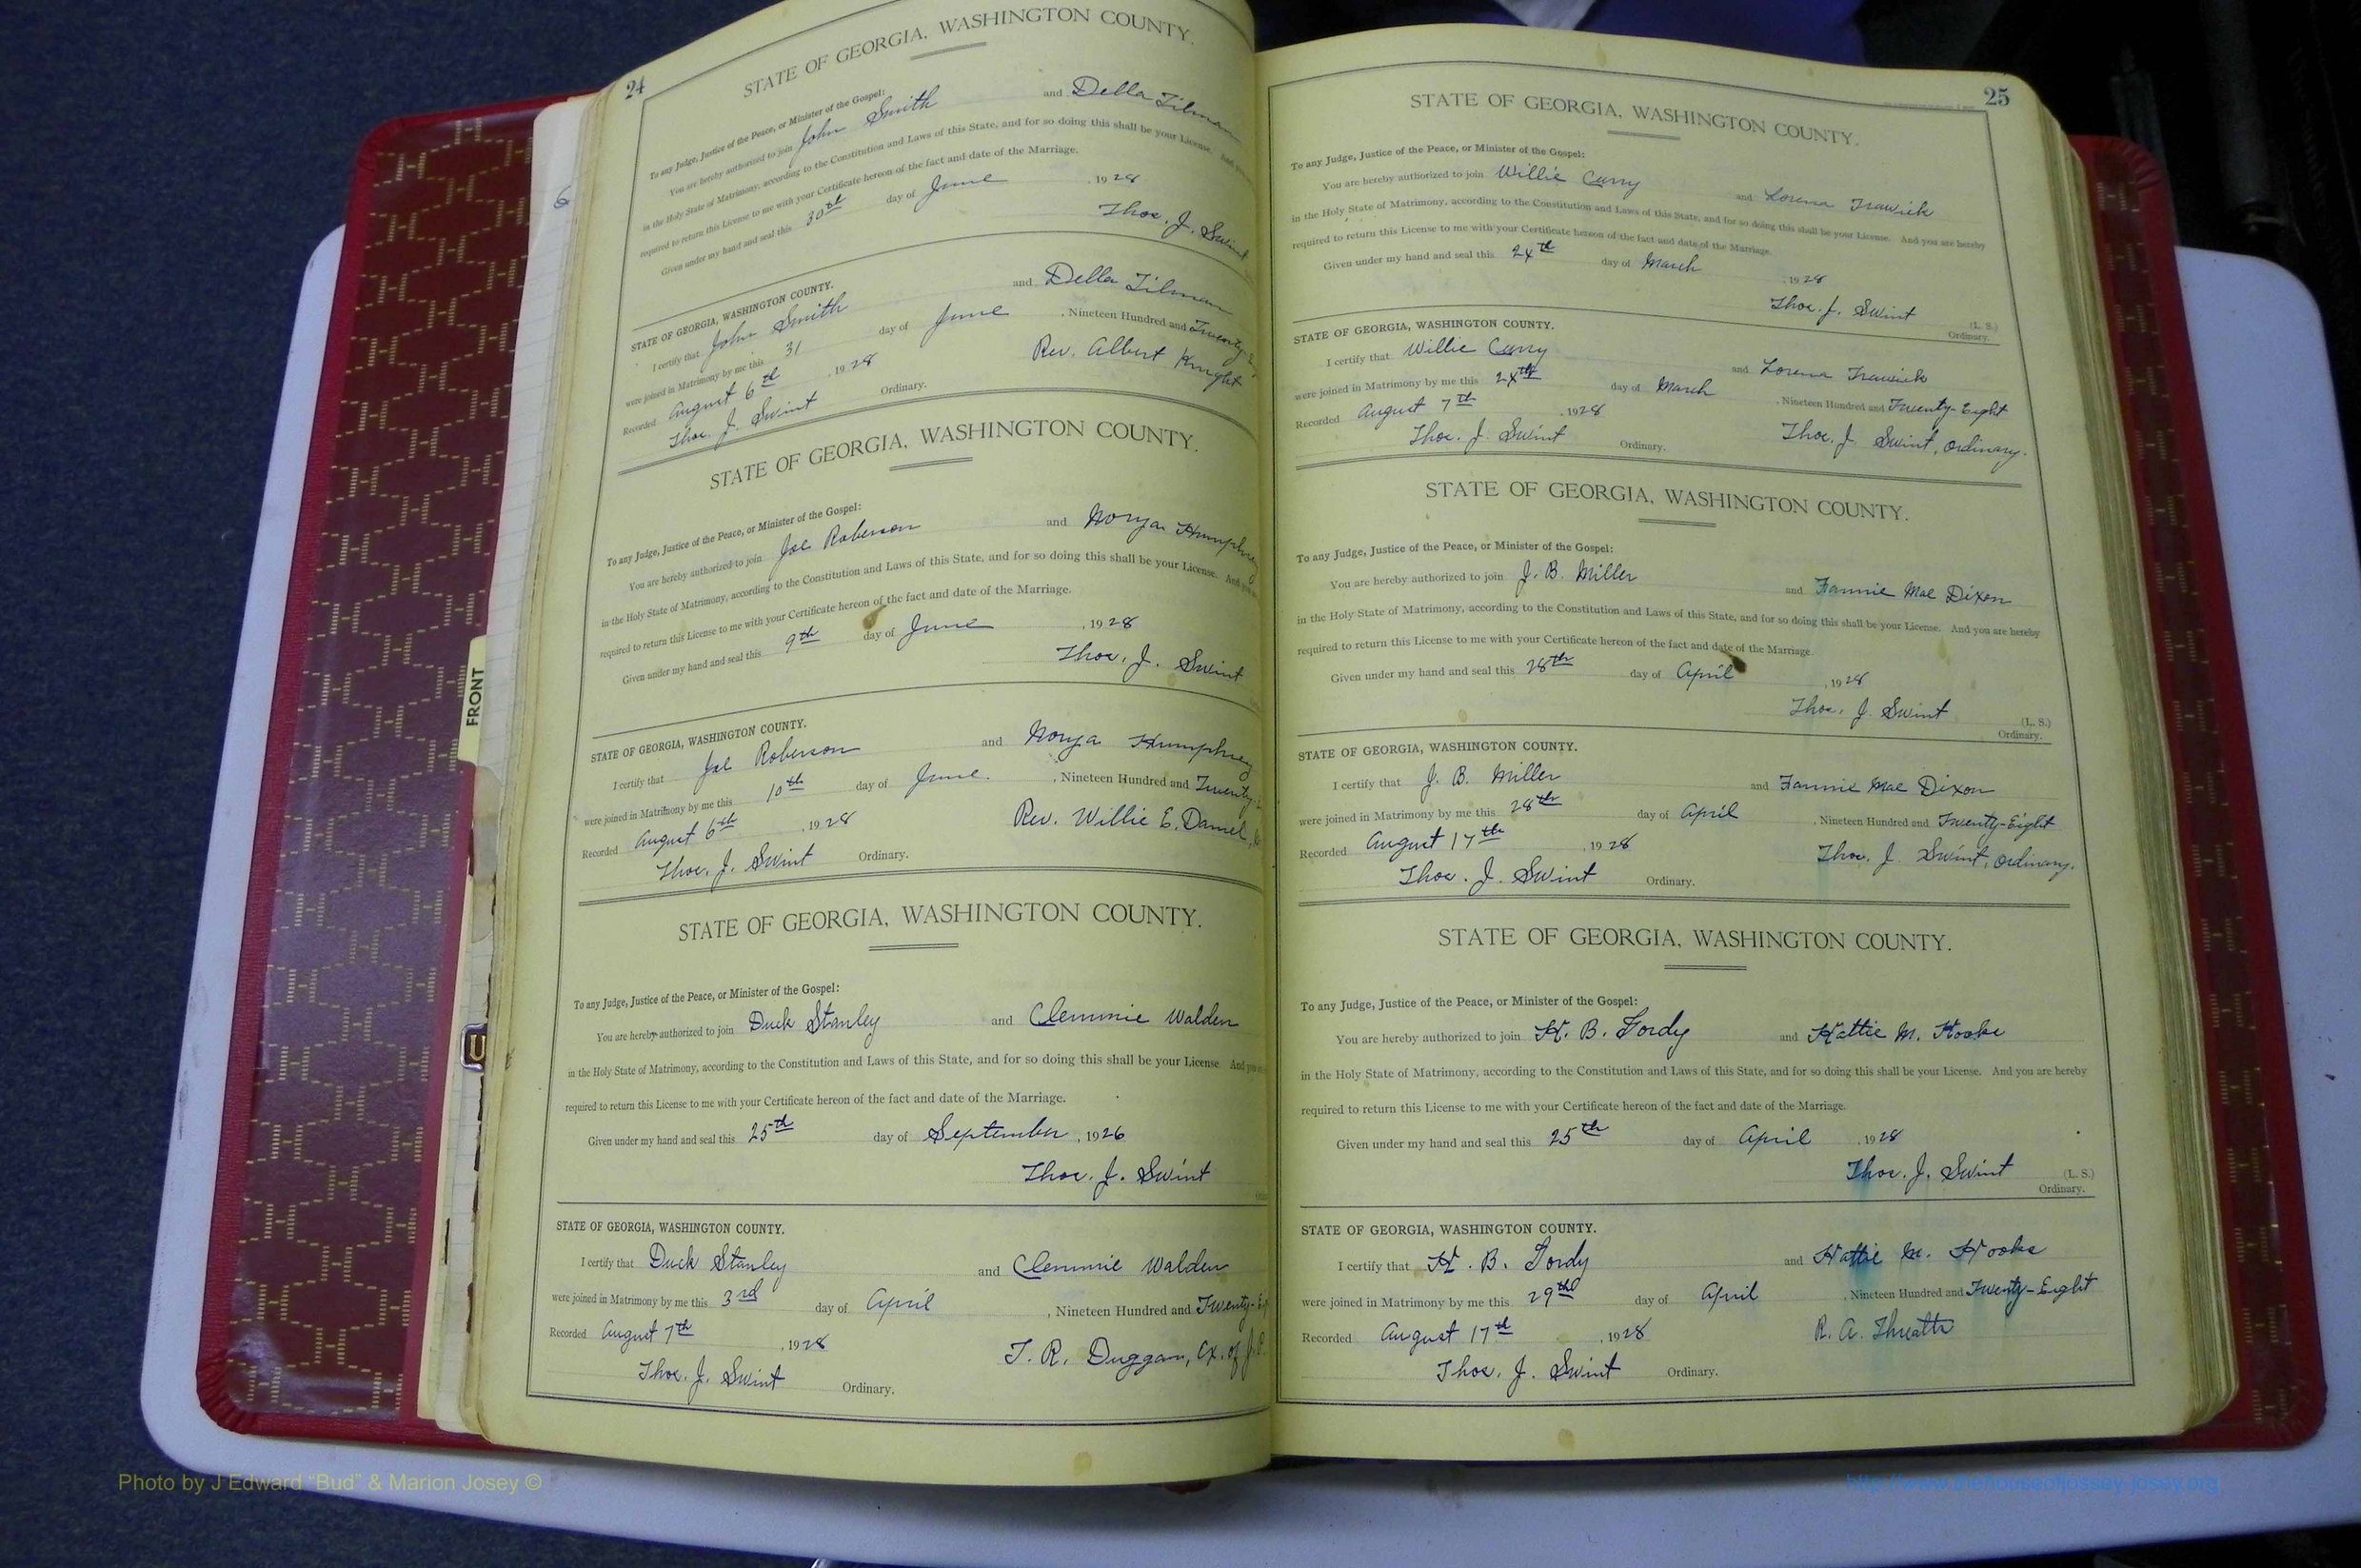 24
STATE OF GEORGIA, WASHINGTON COUNTY.
To any Judge, Justice of the Peace, or Minister of the Gospel:
You are hereby authorized to join John Smith and Della Tilman
in the Holy State of Matrimony, according to the Constitution and Laws of this State, and for so doing this shall be your License. And
required to return this License to me with your Certificate hereon of the fact and date of the Marriage.
Given under my hand and seal this 30th day of June , 1928
Thos. J. Swint
STATE OF GEORGIA, WASHINGTON COUNTY.
I certify that John Smith and Della Tilman
were joined in Matrimony by me this 31 day of June , Nineteen Hundred and Twenty-
Recorded August 6th , 1928 Rev. Albert Knight
Thos. J. Swint Ordinary.
STATE OF GEORGIA, WASHINGTON COUNTY.
To any Judge, Justice of the Peace, or Minister of the Gospel:
You are hereby authorized to join Joe Roberson and Norya Humphrey
in the Holy State of Matrimony, according to the Constitution and Laws of this State, and for so doing this shall be your License. And
required to return this License to me with your Certificate hereon of the fact and date of the Marriage.
Given under my hand and seal this 9th day of June , 1928
Thos. J. Swint
STATE OF GEORGIA, WASHINGTON COUNTY.
I certify that Joe Roberson and Norya Humphrey
were joined in Matrimony by me this 10th day of June. , Nineteen Hundred and Twenty-
Recorded August 6th , 1928 Rev. Willie E. Daniel,
Thos. J. Swint Ordinary.
STATE OF GEORGIA, WASHINGTON COUNTY.
To any Judge, Justice of the Peace, or Minister of the Gospel:
You are hereby authorized to join Duck Stanley and Clemmie Walden
in the Holy State of Matrimony, according to the Constitution and Laws of this State, and for so doing this shall be your License. And
required to return this License to me with your Certificate hereon of the fact and date of the Marriage.
Given under my hand and seal this 25th day of September , 1926
Thos. J. Swint
STATE OF GEORGIA, WASHINGTON COUNTY.
I certify that Duck Stanley and Clemmie Walden
were joined in Matrimony by me this 3rd day of April , Nineteen Hundred and Twenty-
Recorded August 7th , 1928 T. R. Duggan, Ex. of J.
Thos. J. Swint Ordinary.
25
STATE OF GEORGIA, WASHINGTON COUNTY.
To any Judge, Justice of the Peace, or Minister of the Gospel:
You are hereby authorized to join Willie Curry and Lorena Trawick
in the Holy State of Matrimony, according to the Constitution and Laws of this State, and for so doing this shall be your License. And you are hereby
required to return this License to me with your Certificate hereon of the fact and date of the Marriage.
Given under my hand and seal this 24th day of March , 1928
Thos. J. Swint (L. S.)
Ordinary.
STATE OF GEORGIA, WASHINGTON COUNTY.
I certify that Willie Curry and Lorena Trawick
were joined in Matrimony by me this 24th day of March , Nineteen Hundred and Twenty-Eight
Recorded August 7th , 1928 Thos. J. Swint, Ordinary.
Thos. J. Swint Ordinary.
STATE OF GEORGIA, WASHINGTON COUNTY.
To any Judge, Justice of the Peace, or Minister of the Gospel:
You are hereby authorized to join J. B. Miller and Fannie Mae Dixon
in the Holy State of Matrimony, according to the Constitution and Laws of this State, and for so doing this shall be your License. And you are hereby
required to return this License to me with your Certificate hereon of the fact and date of the Marriage.
Given under my hand and seal this 28th day of April , 1928
Thos. J. Swint (L. S.)
Ordinary.
STATE OF GEORGIA, WASHINGTON COUNTY.
I certify that J. B. Miller and Fannie Mae Dixon
were joined in Matrimony by me this 28th day of April , Nineteen Hundred and Twenty-Eight
Recorded August 17th , 1928 Thos. J. Swint, Ordinary.
Thos. J. Swint Ordinary.
STATE OF GEORGIA, WASHINGTON COUNTY.
To any Judge, Justice of the Peace, or Minister of the Gospel:
You are hereby authorized to join H. B. Tordy and Hattie M. Hooks
in the Holy State of Matrimony, according to the Constitution and Laws of this State, and for so doing this shall be your License. And you are hereby
required to return this License to me with your Certificate hereon of the fact and date of the Marriage.
Given under my hand and seal this 25th day of April , 1928
Thos. J. Swint (L. S.)
Ordinary.
STATE OF GEORGIA, WASHINGTON COUNTY.
I certify that H. B. Tordy and Hattie M. Hooks
were joined in Matrimony by me this 29th day of April , Nineteen Hundred and Twenty-Eight
Recorded August 17th , 1928 R. A. Threatte
Thos. J. Swint Ordinary.
FRONT
Photo by J Edward “Bud” & Marion Josey ©
http://www.thehouseofjossey-josey.org